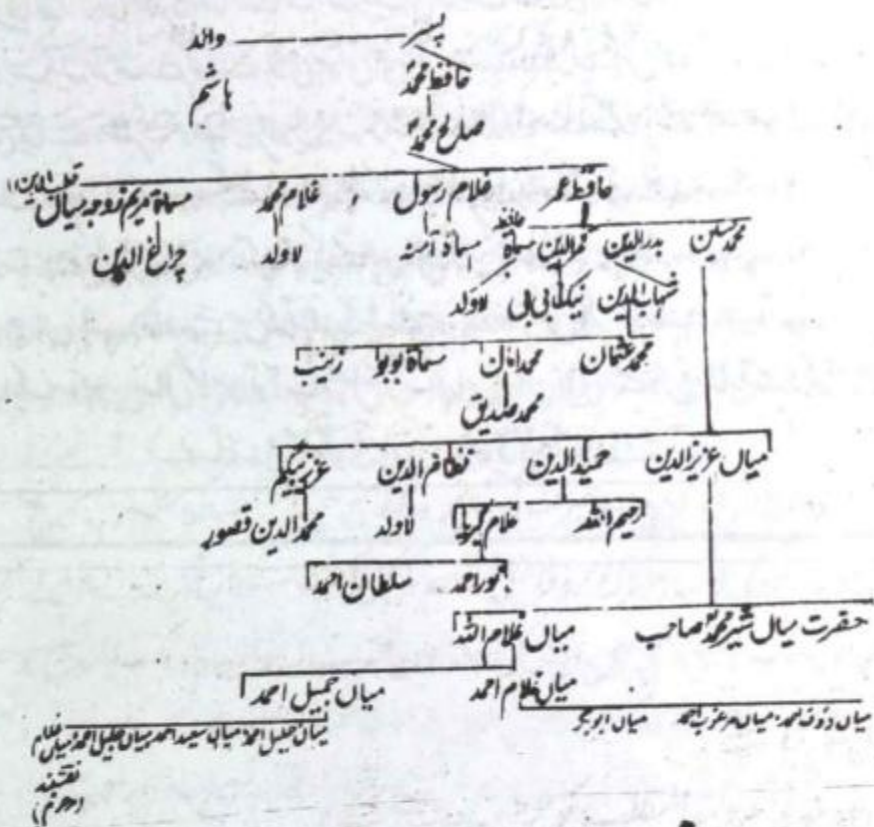 پسر والد
حافظ محمدؒ ہاشم
صالح محمدؒ
حافظ عمر غلام رسول غلام محمد مسماة مریم زوجہ میاں قطب الدین
محمد حسین بدرالدین قمرالدین حافظ مسماة مسماة آمنہ لاولد چراغ الدین
شہاب الدین نیک بی بی لاولد
محمد عثمان محمد امان مسماة بوبو زینب
محمد صدیق
میاں عزیزالدین حمیدالدین نظام الدین عزیز بیگم
رحیم اللہ غلام کبریا لاولد محمد الدین قصور
نور احمد سلطان احمد
حضرت میاں شیر محمدؒ صاحب میاں غلام اللہ
میاں غلام احمد میاں جمیل احمد
میاں رؤف احمد میاں ابوبکر میاں خلیل احمد میاں سعید احمد میاں جلیل احمد میاں غلام
نقشبند